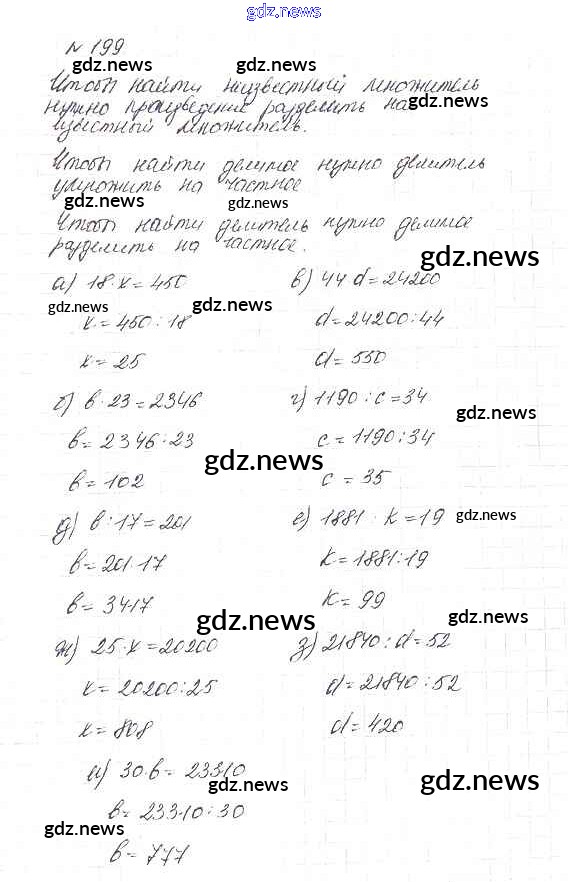 gdz.news
№ 199
gdz.news gdz.news
Чтобы найти неизвестный множитель
нужно произведение разделить на gdz.news
известный множитель.
Чтобы найти делимое нужно делитель
умножить на частное
gdz.news gdz.news
Чтобы найти делитель нужно делимое
разделить на частное.
gdz.news
а) 18·x=450
gdz.news gdz.news
x=450:18
x=25
в) 44 d=24200
d=24200:44
d=550
б) b·23=2346
b=2346:23
b=102
г) 1190:c=34
gdz.news
c=1190:34
c=35
gdz.news
д) b:17=201
b=201·17
b=3417
gdz.news
е) 1881 : k=19 gdz.news
k=1881:19
k=99
gdz.news
ж) 25·x=20200
x=20200:25
x=808
з) 21840:d=52
d=21840:52
d=420
и) 30·b=23310
gdz.news gdz.news
b=23310:30
gdz.news
b=777